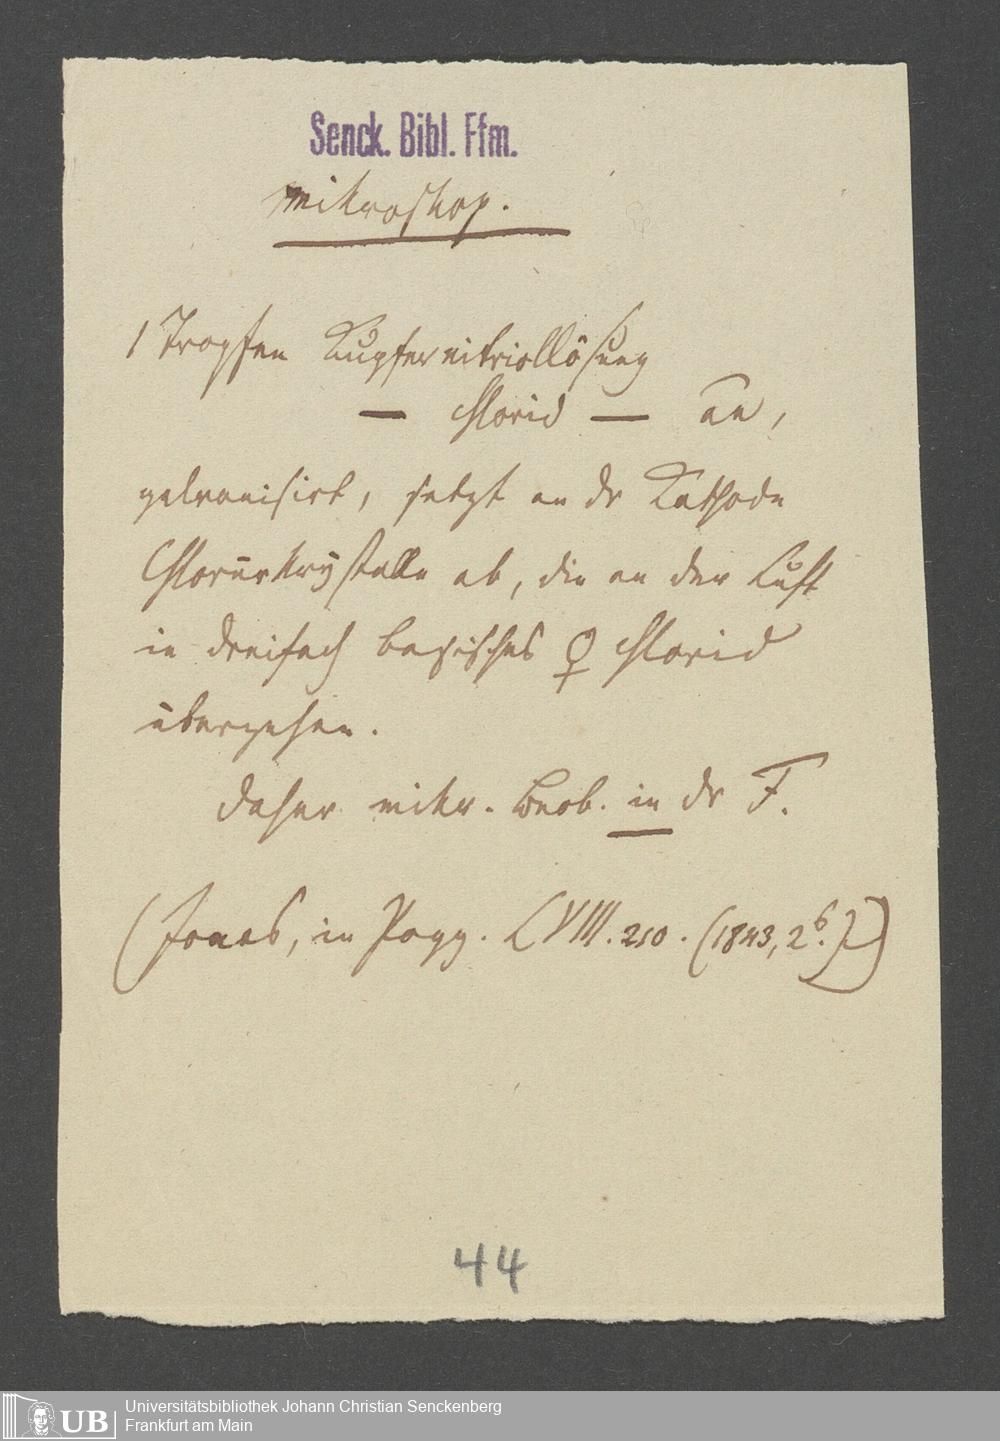 Senck. Bibl. Ffm.
mikroskop.
1 Tropfen Kupfervitriollösung
— chlorid — an,
galvanisirt, setzt an dr Kathode
Chlorürkrystalle ab, die an der Luft
in dreifach basisches ♀ chlorid
übergehen.
Daher mikr. Beob. in dr F.
(Jonas, in Pogg. LVIII. 210. (1843, 2b.))
44
UB
Universitätsbibliothek Johann Christian Senckenberg
Frankfurt am Main